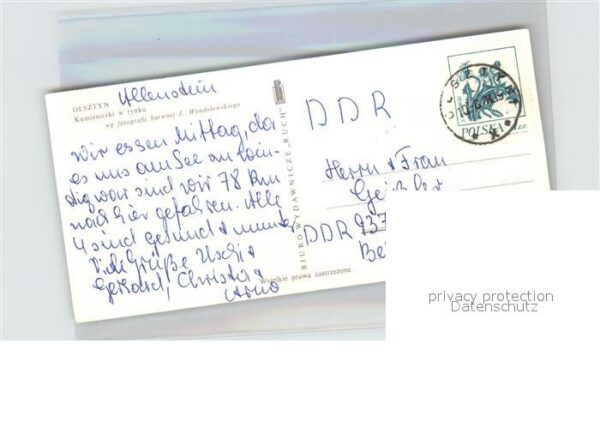 Allenstein
OLSZTYN
Kamieniczki w rynku
wg fotografii barwnej J. Wendołowskiego
Wir essen Mittag, da
es uns am See zu win-
dig war sind wir 78 km
nach hier gefahren. Alle
4 sind gesund + munter
Viele Grüße Uschi +
Gerhard, Christa +
Arno
BIURO WYDAWNICZE „RUCH"
Wszelkie prawa zastrzeżone
DDR
Herrn + Frau
DDR 937
OLSZTYN
POLSKA
privacy protection
Datenschutz